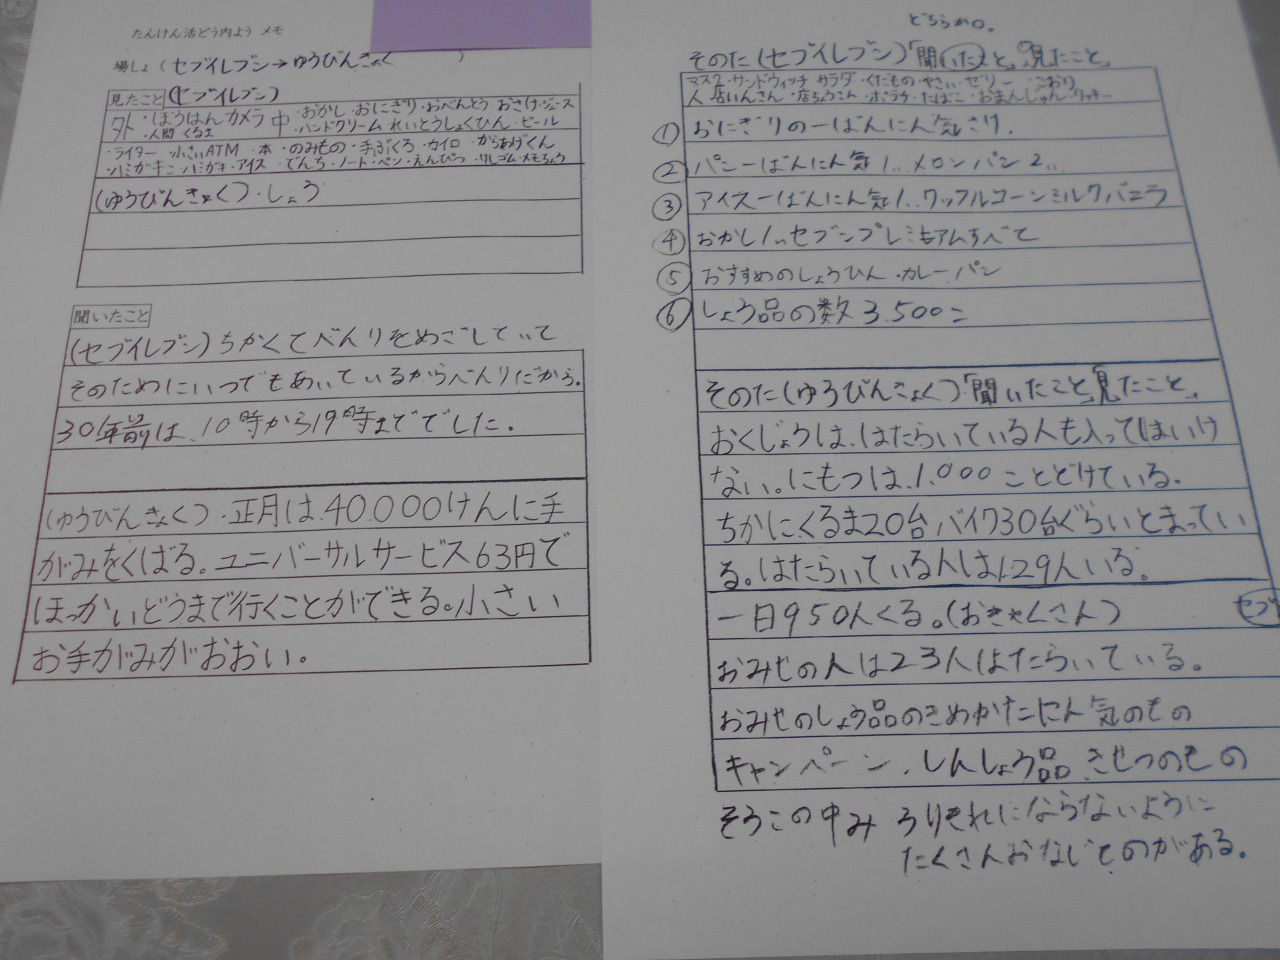 たんけん活どう内よう メモ
場しょ(セブイレブン→ゆうびんきょく )
見たこと (セブイレブン)
外・ぼうはんカメラ 中・おかし・おにぎり・おべんとう おさけ・ジュース
・人間 くるま ・ハンドクリーム れいとうしょくひん・ビール
・ライター 小さいATM ・本 ・のみもの・手ぶくろ・カイロ ・からあげくん
・ハミガキこ・ハミガキ・アイス ・でんち・ノート・ペン・えんぴつ・けしゴム・メモちょう
(ゆうびんきょく)・しょう
聞いたこと
(セブイレブン)ちかくてべんりをめざしていて
そのためにいつでもあいているからべんりだから。
30年前は、10時から19時まででした。
(ゆうびんきょく)・正月は40.000けんに手
がみをくばる。ユニバーサルサービス63円で
ほっかいどうまで行くことができる。小さい
お手がみがおおい。
どちらか○。
そのた(セブイレブン)「聞いたこと」「見たこと」
マスク・サンドウィッチ サラダ・くだもの・やさい・ゼリー ・こおり
人 店いんさん ・店ちょうさん ・ポテチ・たばこ ・おまんじゅう・クッキー
① おにぎりの一ばんにん気さけ.
② パン一ばんにん気1… メロンパン2…
③ アイス一ばんにん気1… ワッフルコーンミルクバニラ
④ おかし1… セブンプレミもアムすべて
⑤ おすすめのしょうひん・カレーパン
⑥ しょう品の数3.500こ
そのた(ゆうびんきょく)「聞いたこと」「見たこと」
おくじょうは、はたらいている人も入ってはいけ
ない。にもつは、1.000ことどけている。
ちかにくるま20台 バイク30台ぐらいとまってい
る。はたらいている人は129人いる。
一日950人くる。(おきゃくさん) セブ
おみせの人は23人はたらいている。
おみせのしょう品のきめかたにん気のもの
キャンペーン、しんしょう品 きせつのもの
そうこの中み うりきれにならないように
たくさんおないものがある。